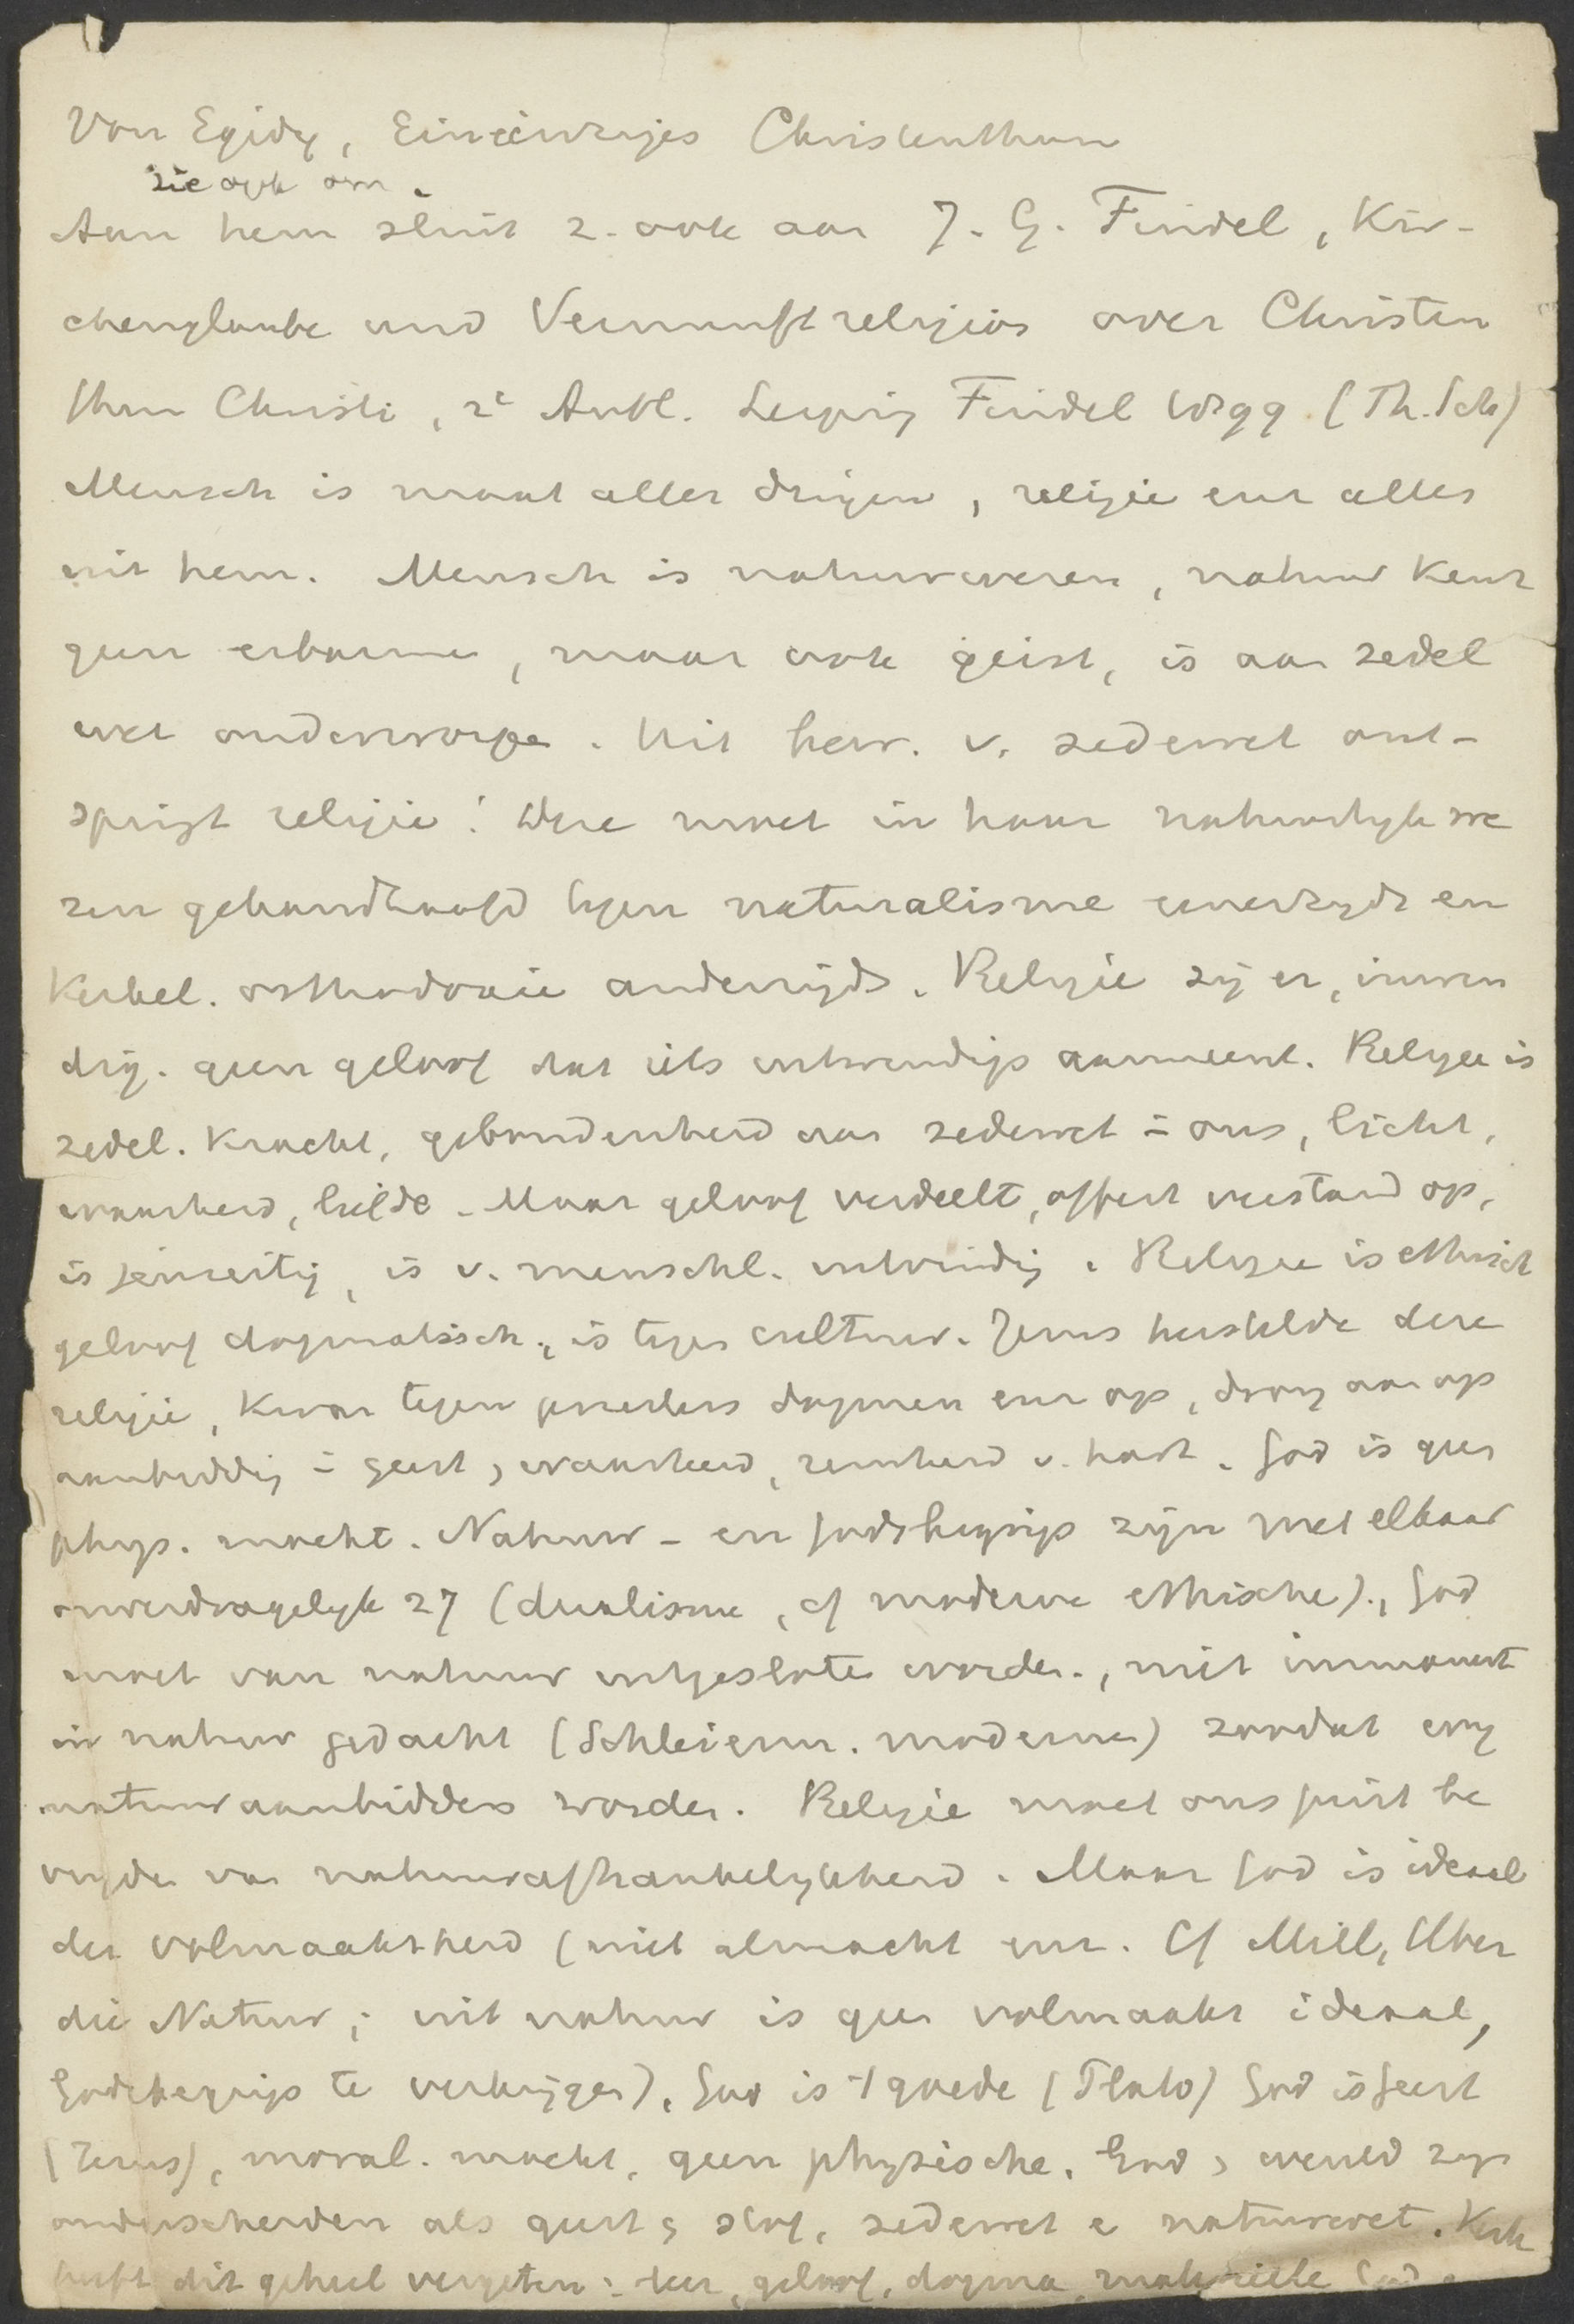 Von Egidy, Ein einziges Christenthum
zie ook om.
Aan hem sluit z. ook aan J. G. Findel, Kir-
chenglaube und Vernunftreligion over Christen
thum Christi, 2e Aufl. Leipzig Findel 1899 (Th. Sch)
Mensch is maat aller dingen, religie enz alles
uit hem. Mensch is natuurwezen, natuur kent
geen erbarmen, maar ook geist, is aan zedel
wet onderworpen. Uit bew. v. zedewet ont-
springt religie! Deze moet in haar natuurlijk we
zen gehandhaafd tegen naturalisme eenerzijds en
Kerkel. orthodoxie anderzijds. Religie zij er, inwen
dig. geen geloof dat iets uitwendigs aanneemt. Religie is
zedel. Kracht, gebondenheid aan zedewet in ons, licht,
waarheid, liefde. Maar geloof verdeelt, offert verstand op,
is jenseitig, is v. menschl. uitwendig. Religie is ethisch
geloof dogmatisch, is tegen cultuur. Jezus herstelde deze
religie, Kwam tegen priesters dogmen enz op, drong aan op
aanbidding in geest, waarheid, reinheid v. hart. God is geen
phys. macht. Natuur- en godsbegrip zijn met elkaar
onverdragelijk 27 (dualisme, cf moderne ethische)., God
moet van natuur uitgesloten worden., niet immanent
in natuur gedacht (Schleierm. moderne) zoodat wij
natuuraanbidders worden. Religie moet ons juist be
vrijden van natuurafhankelijkheid. Maar God is ideaal
der volmaaktheid (niet almacht enz. Cf Mill, Über
die Natur; uit natuur is geen volmaakt ideaal,
Godsbegrip te verkrijgen). God is 't goede (Plato) God is geest
(Jezus), moral. macht, geen physische. God, wereld zijn
onderscheiden als geest, stof, zedewet en natuurwet. Kerk
heeft dit geheel vergeten: leer, geloof, dogma, materieele God